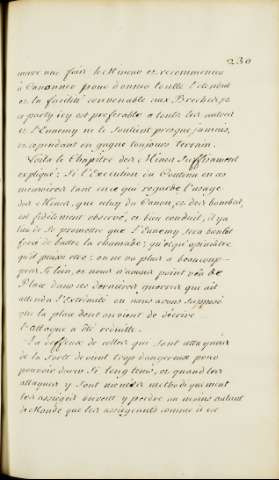 230
encore une fois le Mineur et recommencer
à Canonner pour donner toutte l'etendue
et la facilité convenable aux Breches, ce
party icy est preferable a touts les autres
et l'Ennemy ne le soutient presque jamais,
et cependant on gagne toujours terrain.
Voila le Chapitre des Mines suffisament
expliqué; Si l'Execution du Contenu en ces
memoires tant en ce qui regarde l'usage
des Mines, que celuy du Canon, et des bombes,
est fidelement observé, et bien conduit, il y a
lieu de se promettre que l'Ennemy sera bientot
forcé de battre la chamade; quelque opiniatre
qu'il puisse etre: on ne va plus a beaucoup
pres si loin, et nous n'avons point vû de
Place dans ces dernieres guerres qui ait
attendu l'Extremité ou nous avons supposé
que la place dont on vient de décrire
l'attaque a été reduitte.
La deffense de celles qui sont attaquées
de la sorte devient trop dangereuse pour
pouvoir durer si longtems, et quand les
attaques y sont menées methodiquement
les assiegés doivent y perdre au moins autant
de Monde que les assiegeants comme il est